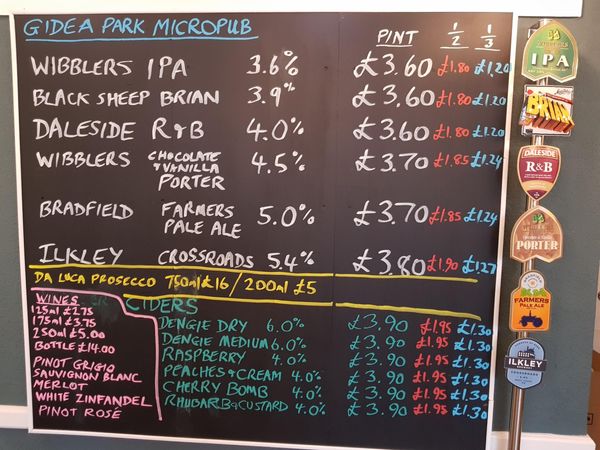 GIDEA PARK MICROPUB
PINT 1/2 1/3
WIBBLERS IPA 3.6% £3.60 £1.80 £1.20
BLACK SHEEP BRIAN 3.9% £3.60 £1.80 £1.20
DALESIDE R&B 4.0% £3.60 £1.80 £1.20
WIBBLERS CHOCOLATE & VANILLA PORTER 4.5% £3.70 £1.85 £1.24
BRADFIELD FARMERS PALE ALE 5.0% £3.70 £1.85 £1.24
ILKLEY CROSSROADS 5.4% £3.80 £1.90 £1.27
DA LUCA PROSECCO 750ml £16 / 200ml £5
WINES
125ml £2.75
175ml £3.75
250ml £5.00
BOTTLE £14.00
PINOT GRIGIO
SAUVIGNON BLANC
MERLOT
WHITE ZINFANDEL
PINOT ROSÉ
CIDERS
DENGIE DRY 6.0% £3.90 £1.95 £1.30
DENGIE MEDIUM 6.0% £3.90 £1.95 £1.30
RASPBERRY 4.0% £3.90 £1.95 £1.30
PEACHES & CREAM 4.0% £3.90 £1.95 £1.30
CHERRY BOMB 4.0% £3.90 £1.95 £1.30
RHUBARB & CUSTARD 4.0% £3.90 £1.95 £1.30
WIBBLERS
IPA
BRIAN
DALESIDE
R&B
PORTER
FARMERS
PALE ALE
ILKLEY
CROSSROADS